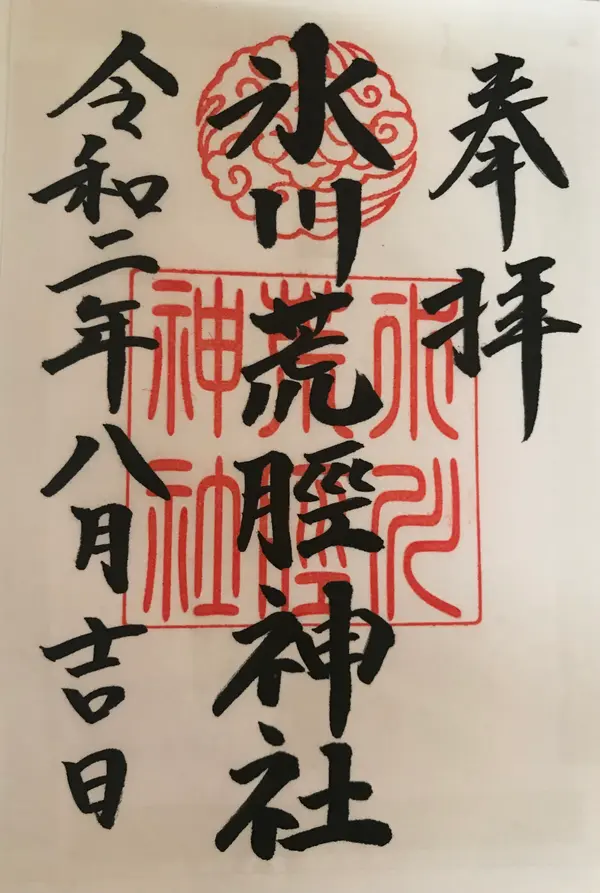 奉拝
氷川荒脛神社
令和二年八月吉日
氷川荒脛神社